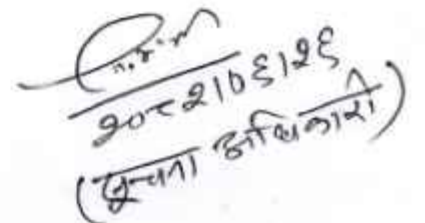 २०८२।०६।२६
(सूचना अधिकारी)